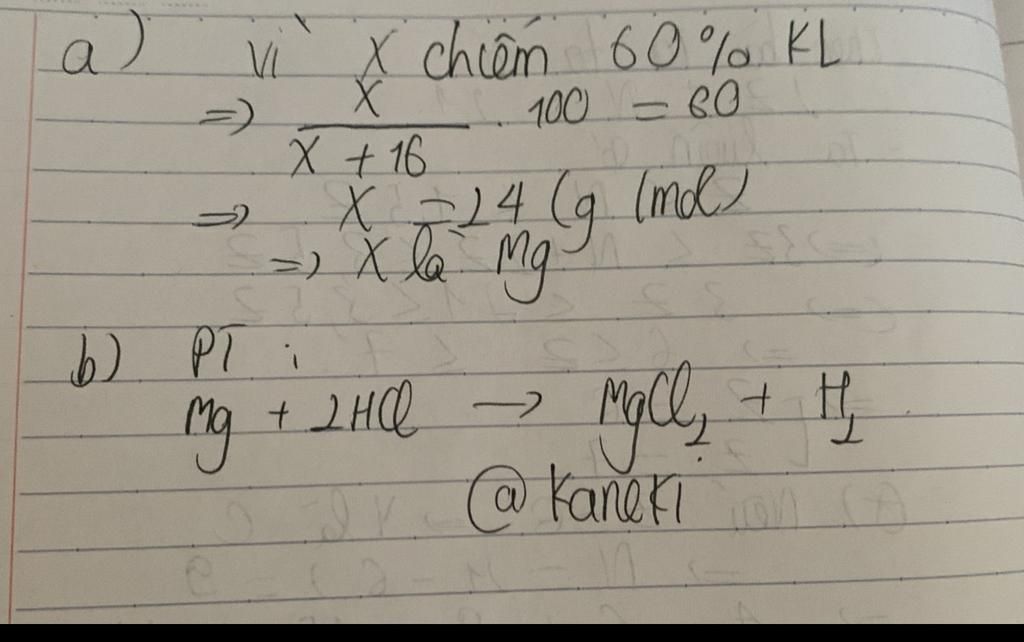 a) Vì X chiếm 60% KL
=> X / X + 16 . 100 = 60
=> X = 24 (g/mol)
=> X là Mg
b) PT :
Mg + 2HCl → MgCl₂ + H₂
@Kaneki